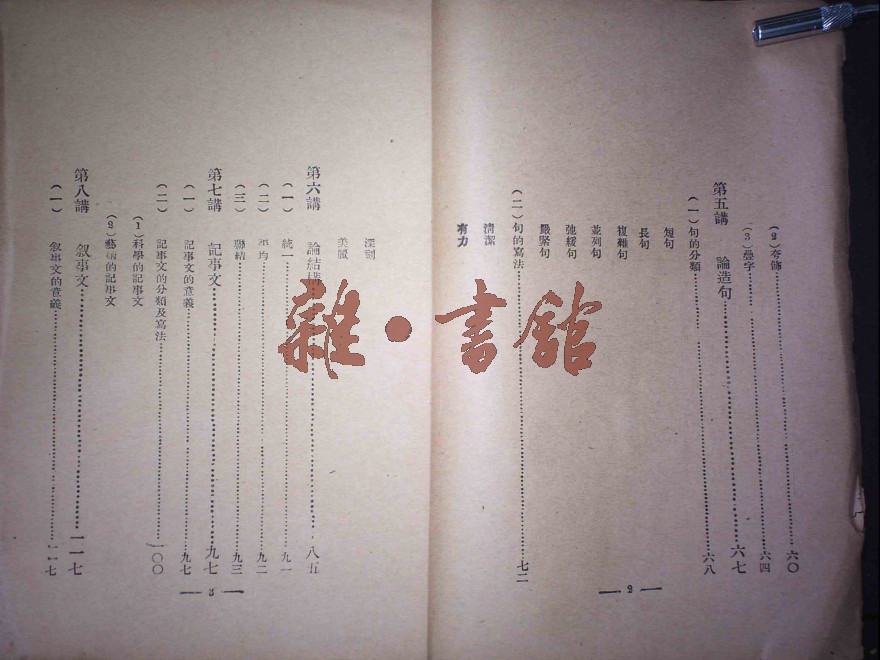 （2）夸飾……六〇
（3）疊字……六四
第五講 論造句……六七
（一）句的分類……六八
短句
長句
複雜句
並列句
弛緩句
嚴緊句
（二）句的寫法……七二
清潔
有力
— 2 —
深刻
美麗
第六講 論結構……八五
（一）統一……九一
（二）平均……九二
（三）聯結……九三
第七講 記事文……九七
（一）記事文的意義……九七
（二）記事文的分類及寫法……一〇〇
（1）科學的記事文
（2）藝術的記事文
第八講 叙事文……一一七
（一）叙事文的意義……一一七
— 3 —
雜·書館